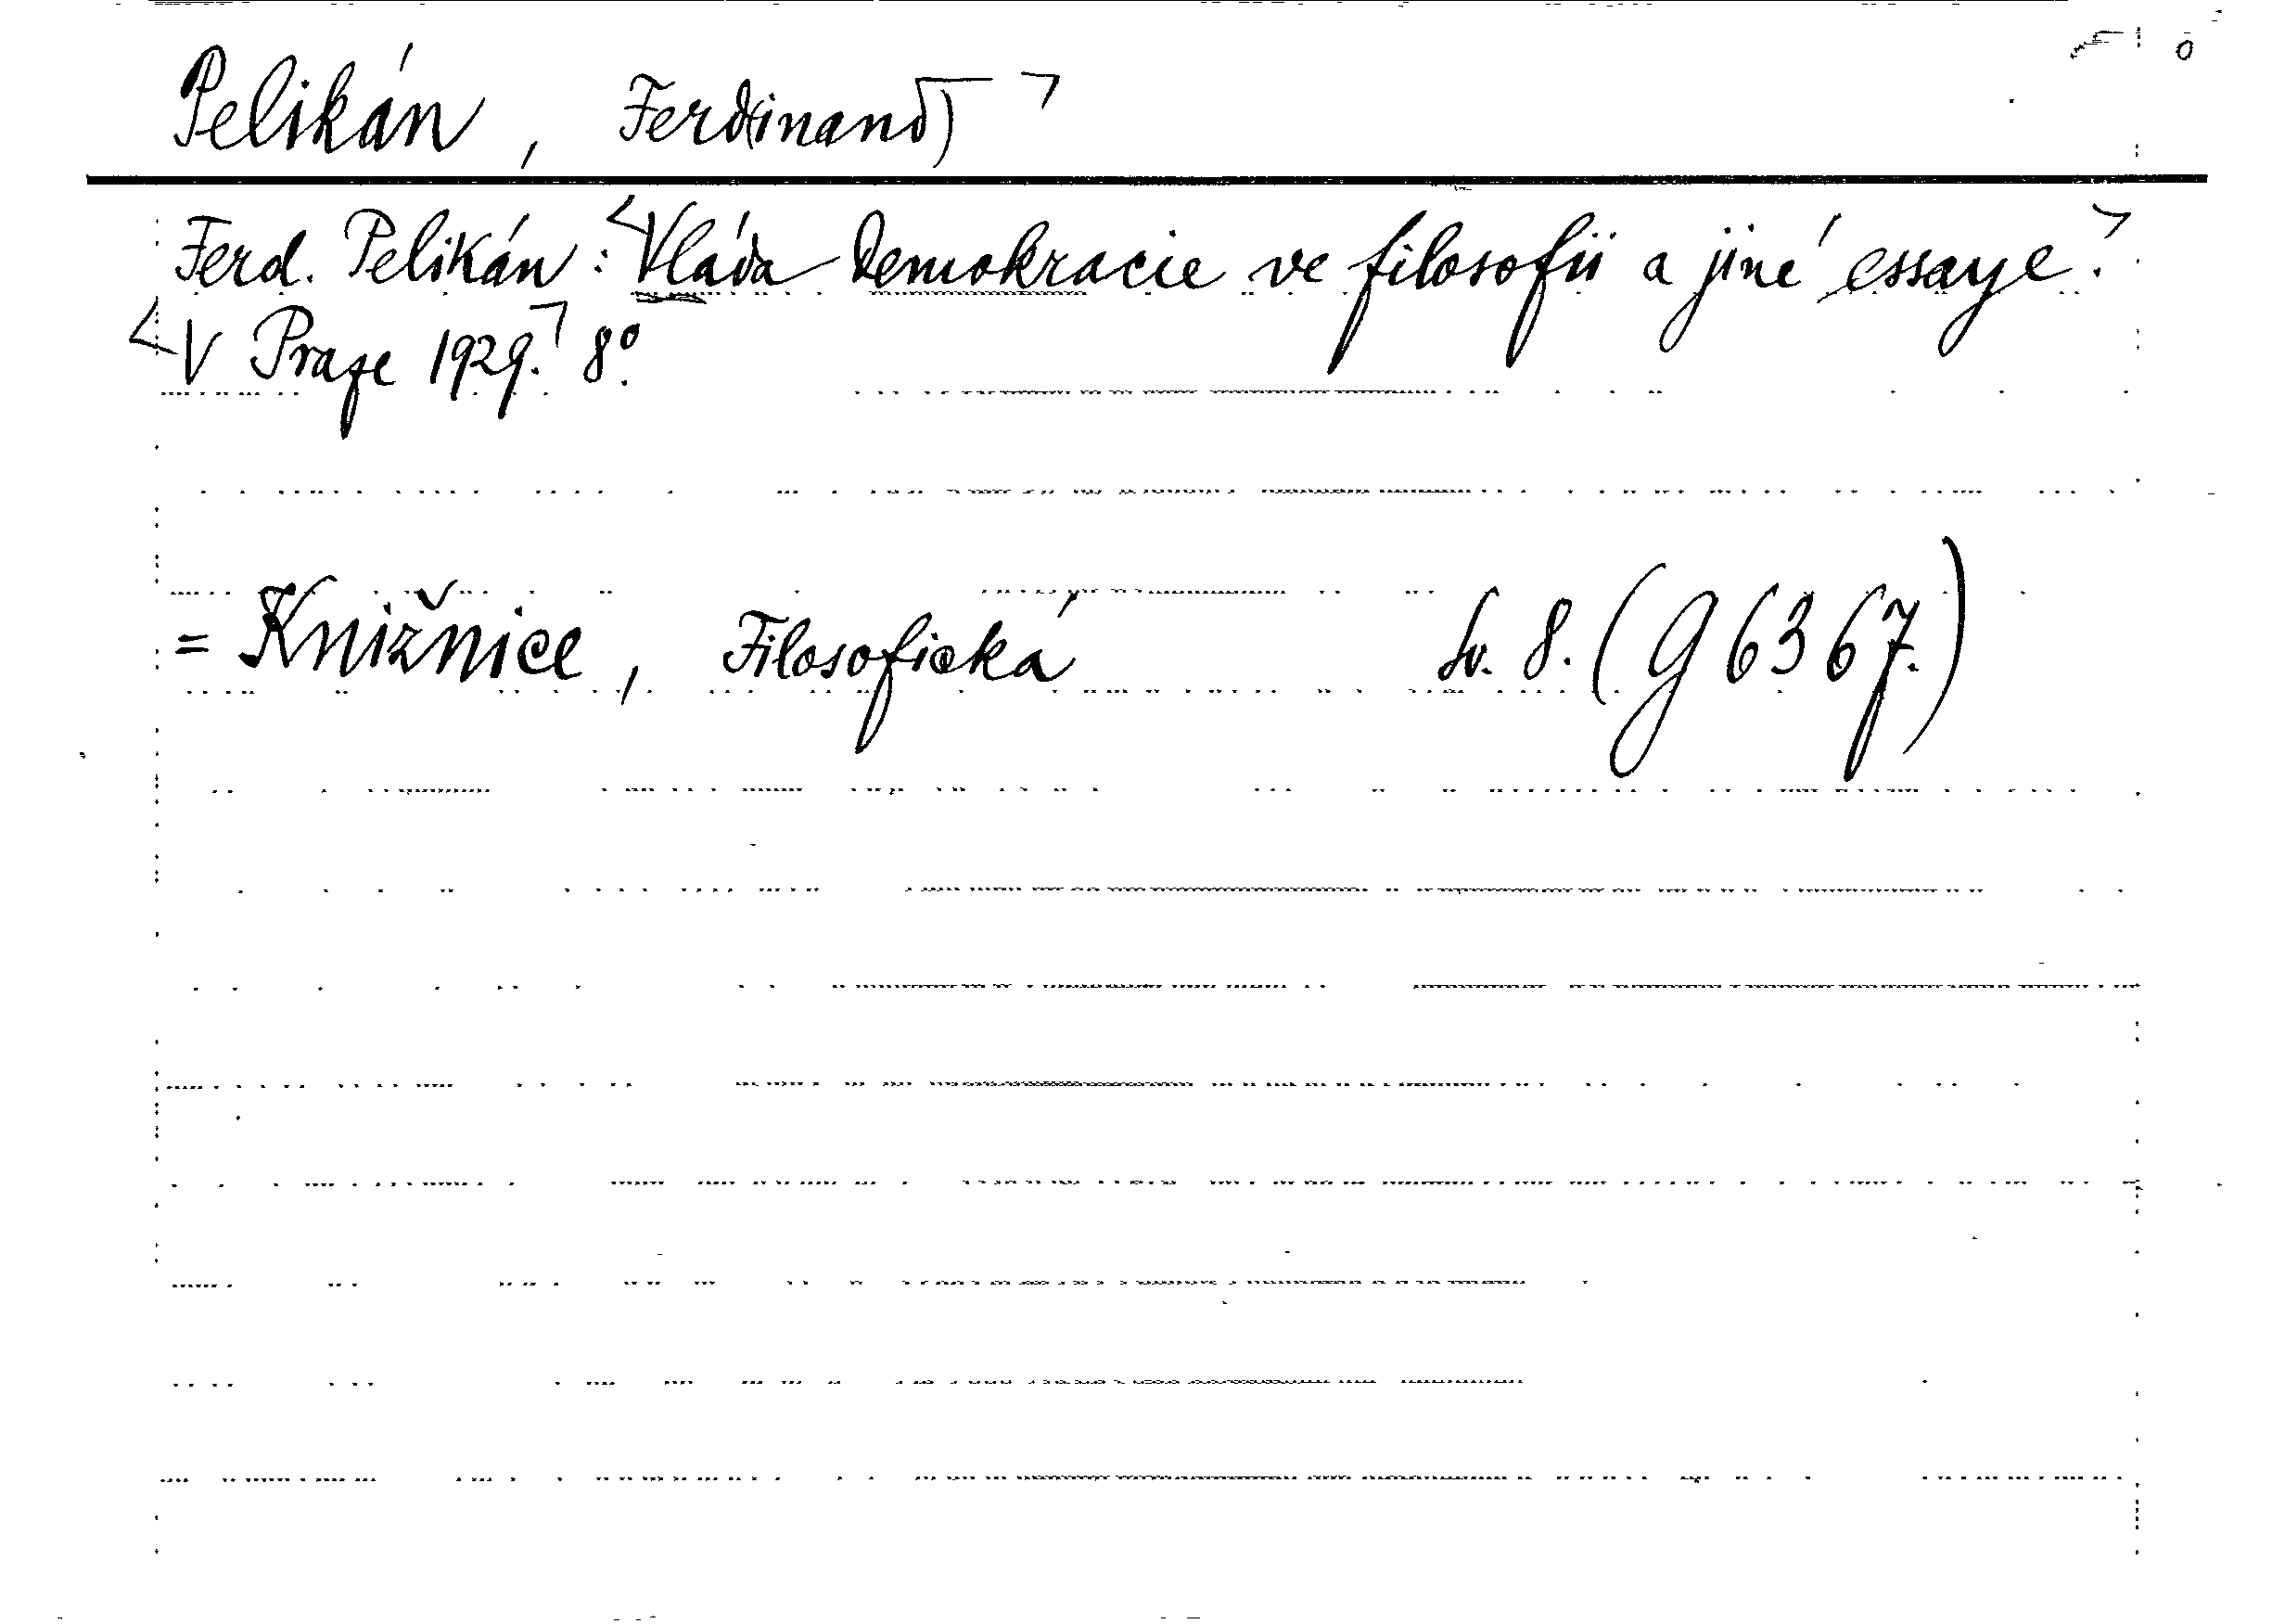 Pelikán, Ferd(inand)
Ferd. Pelikán: Vláda demokracie ve filosofii a jiné essaye.
V Praze 1929. 8º.
= Knižnice, Filosofická Sv. 8. (g 6367.)